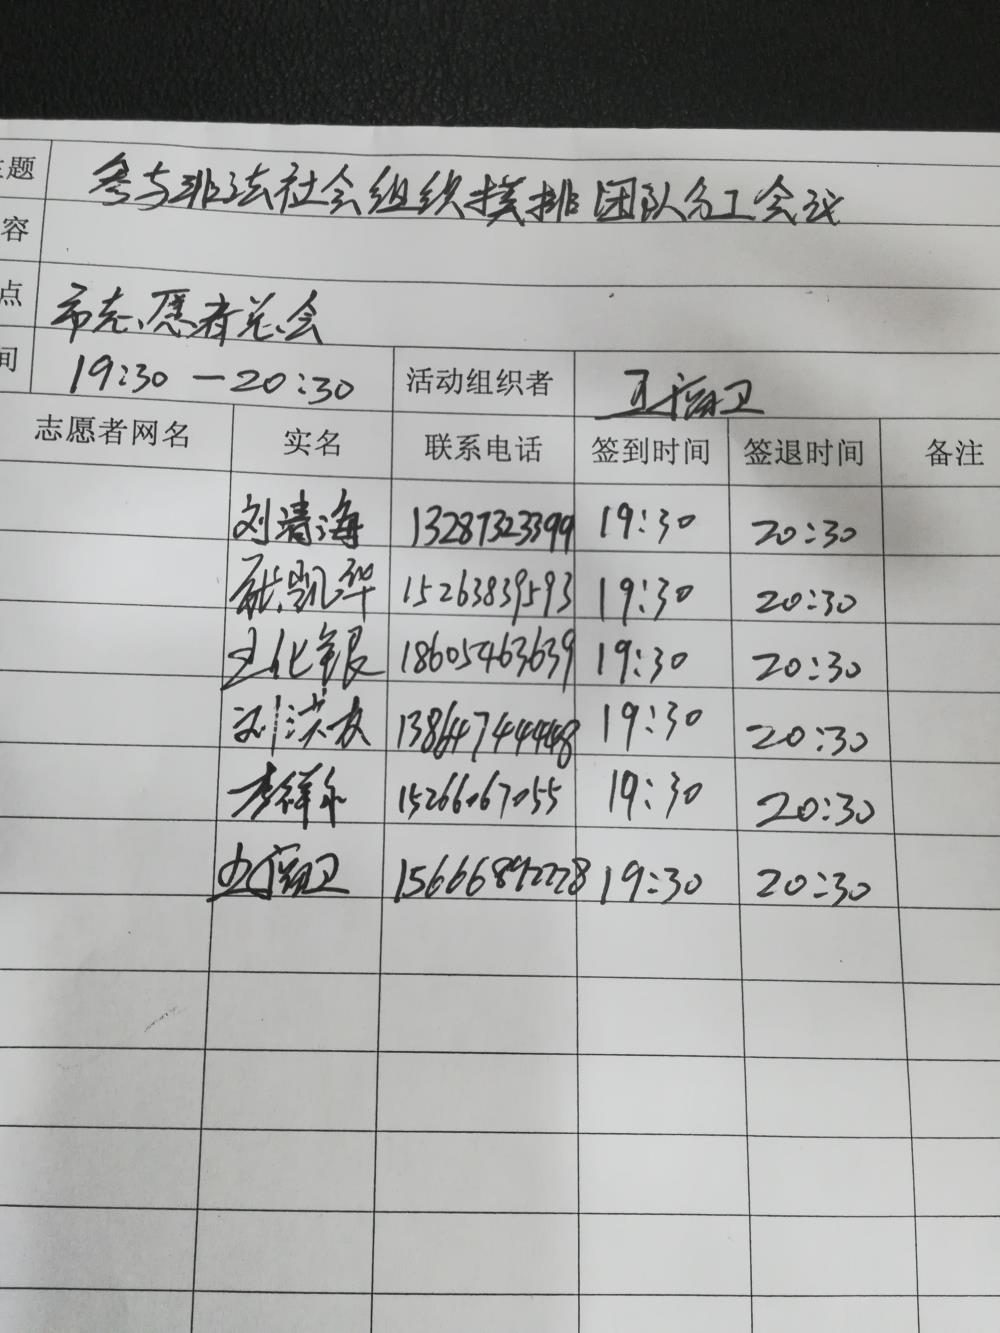 主题 参与非法社会组织摸排团队分工会议
容
点 市志愿者总会
间 19:30 — 20:30 活动组织者
志愿者网名 实名 联系电话 签到时间 签退时间 备注
刘清海 13287323399 19:30 20:30
凯华 15263839593 19:30 20:30
王化银 18605463639 19:30 20:30
刘洪友 13864744448 19:30 20:30
李祥永 15266067055 19:30 20:30
15666892228 19:30 20:30